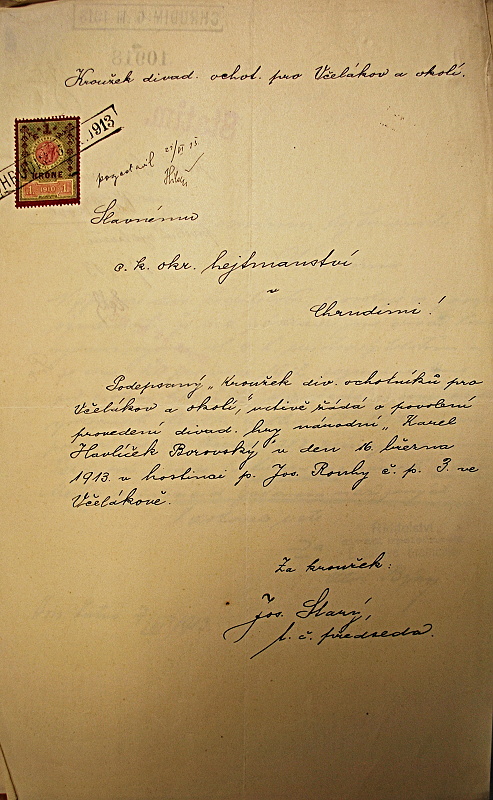 Kroužek divad. ochot. pro Včelákov a okolí.
1913
1
KRONE
1 1910 1
Slavnému
c. k. okr. hejtmanství
v
Chrudimi!
Podepsaný „Kroužek div. ochotníků pro
Včelákov a okolí", uctivě žádá o povolení
provedení divad. hry národní „Karel
Havlíček Borovský" v den 16. března
1913 v hostinci p. Jos. Rouhy č. p. 3. ve
Včelákově.
Za kroužek:
Jos. Starý,
t. č. předseda.